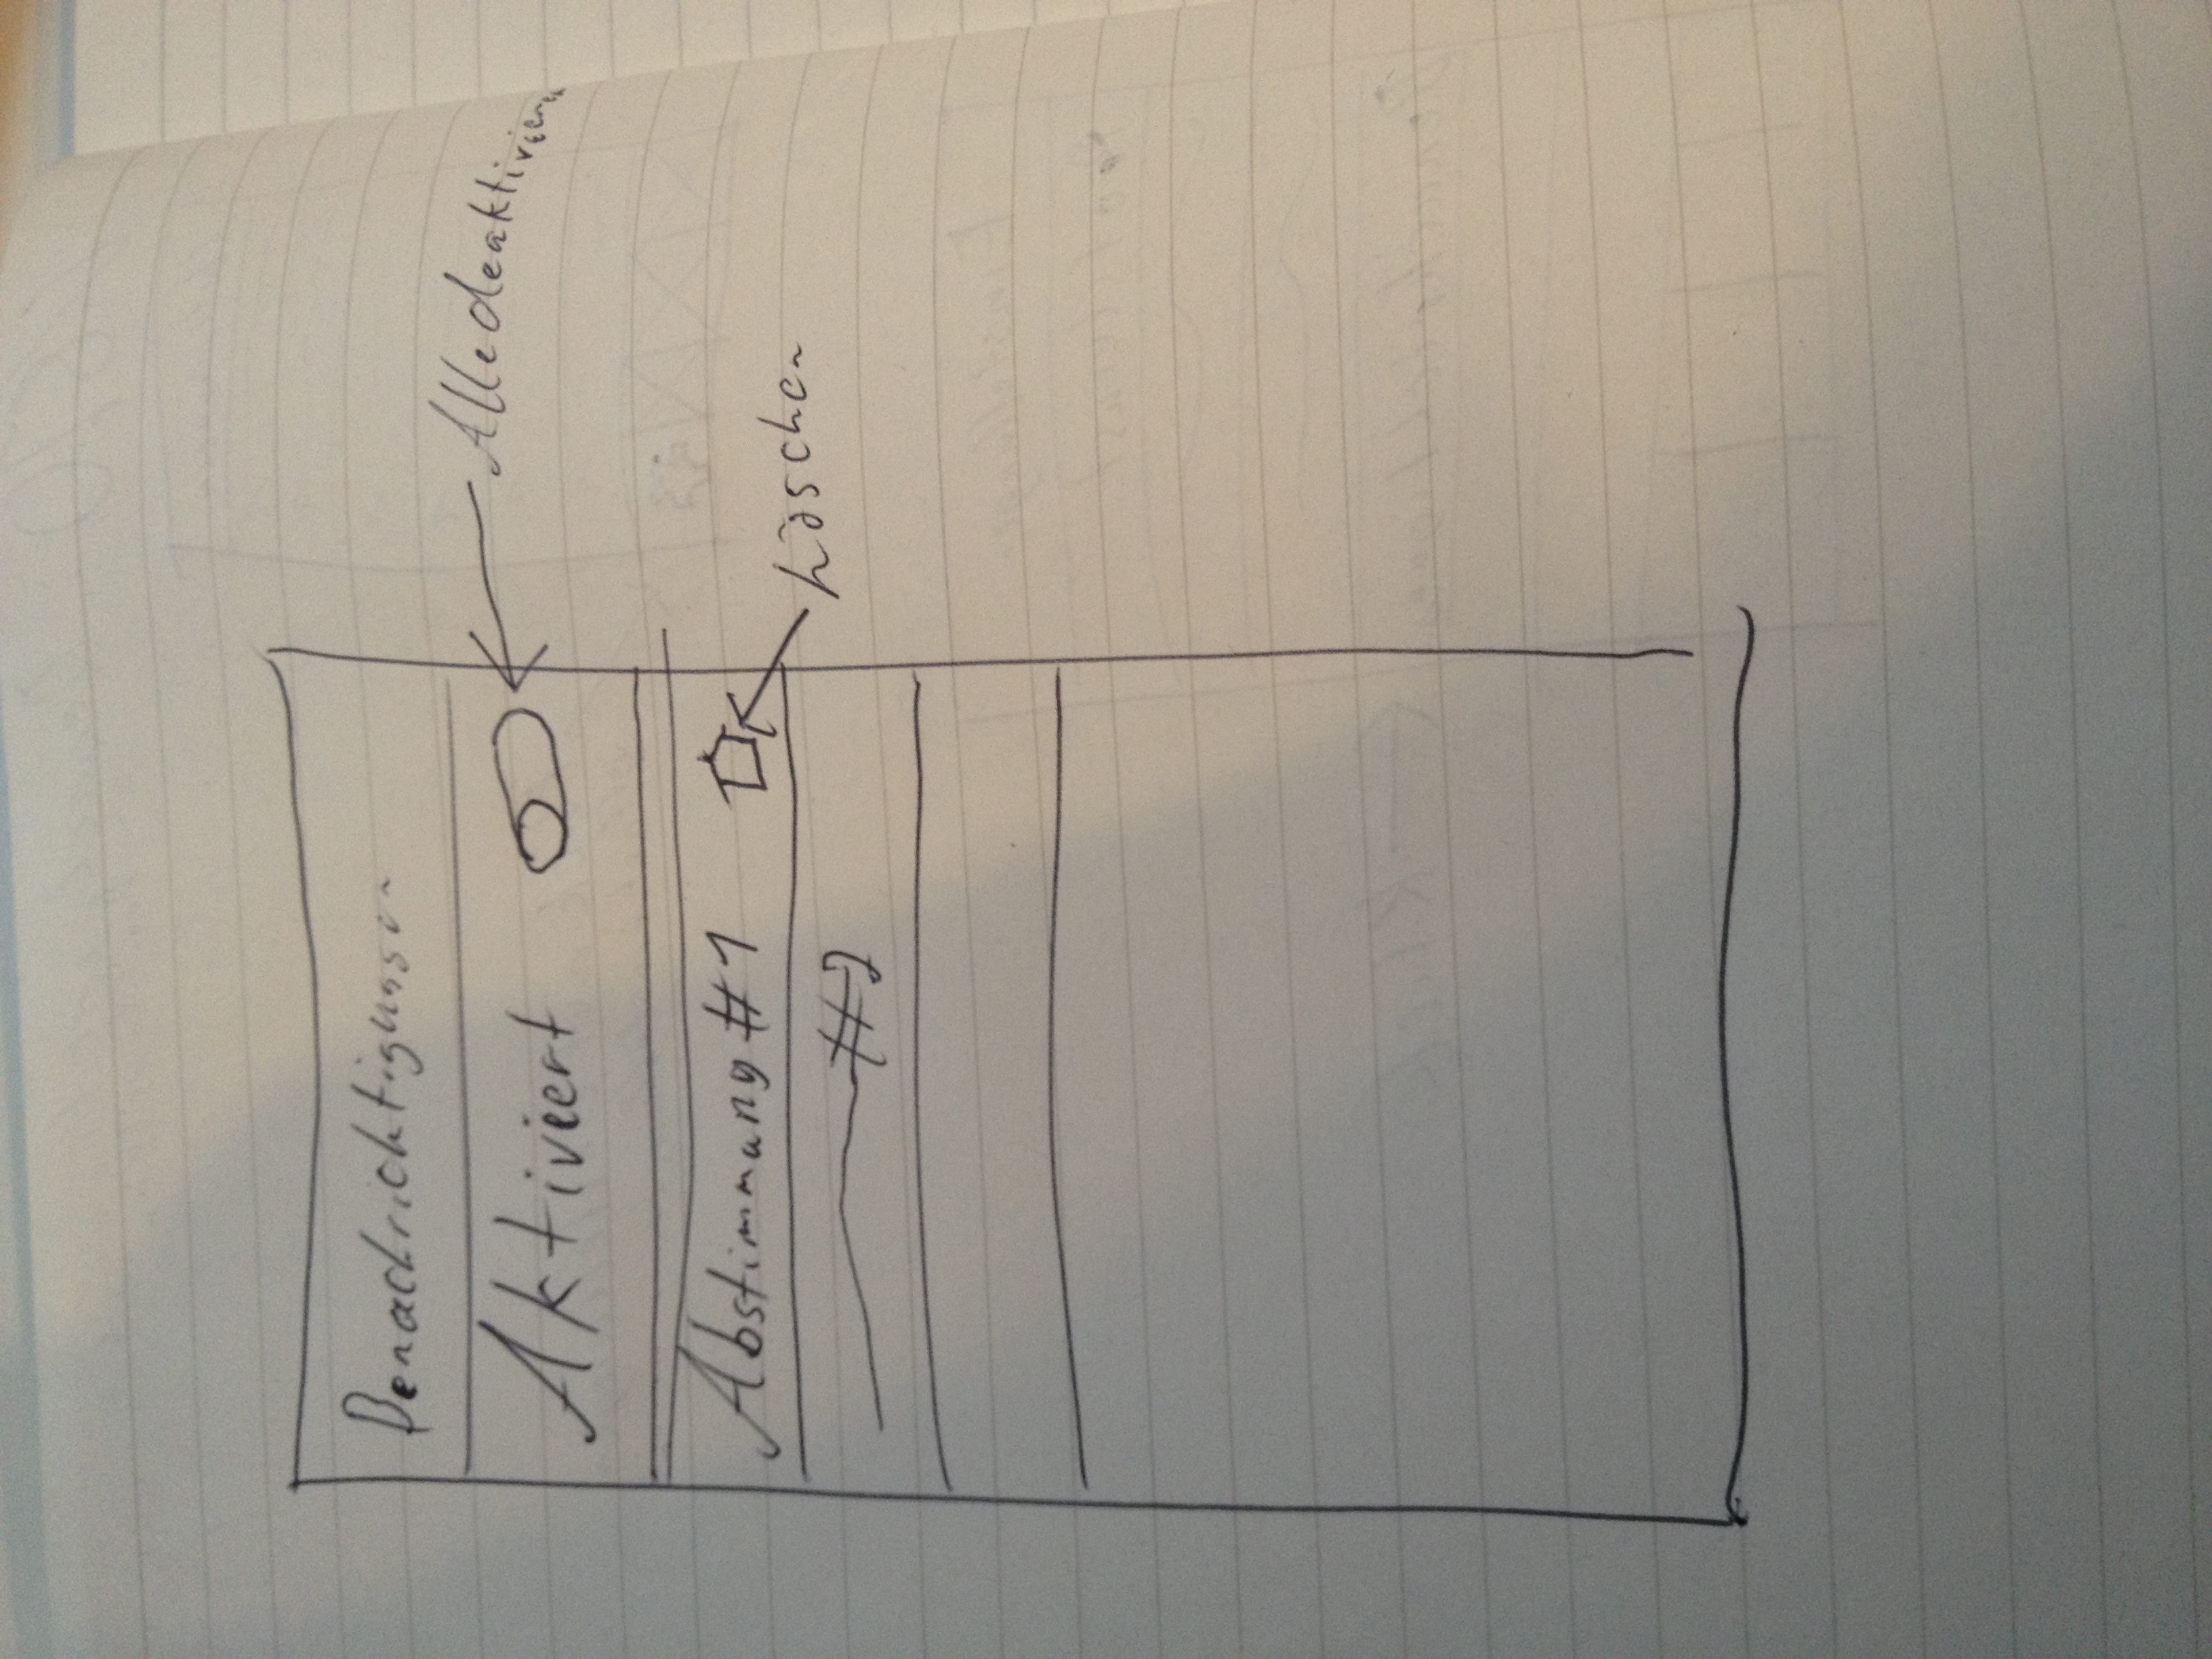 Benachrichtigungen
Aktiviert
Alle deaktivieren
Abstimmung #1
Löschen
#2